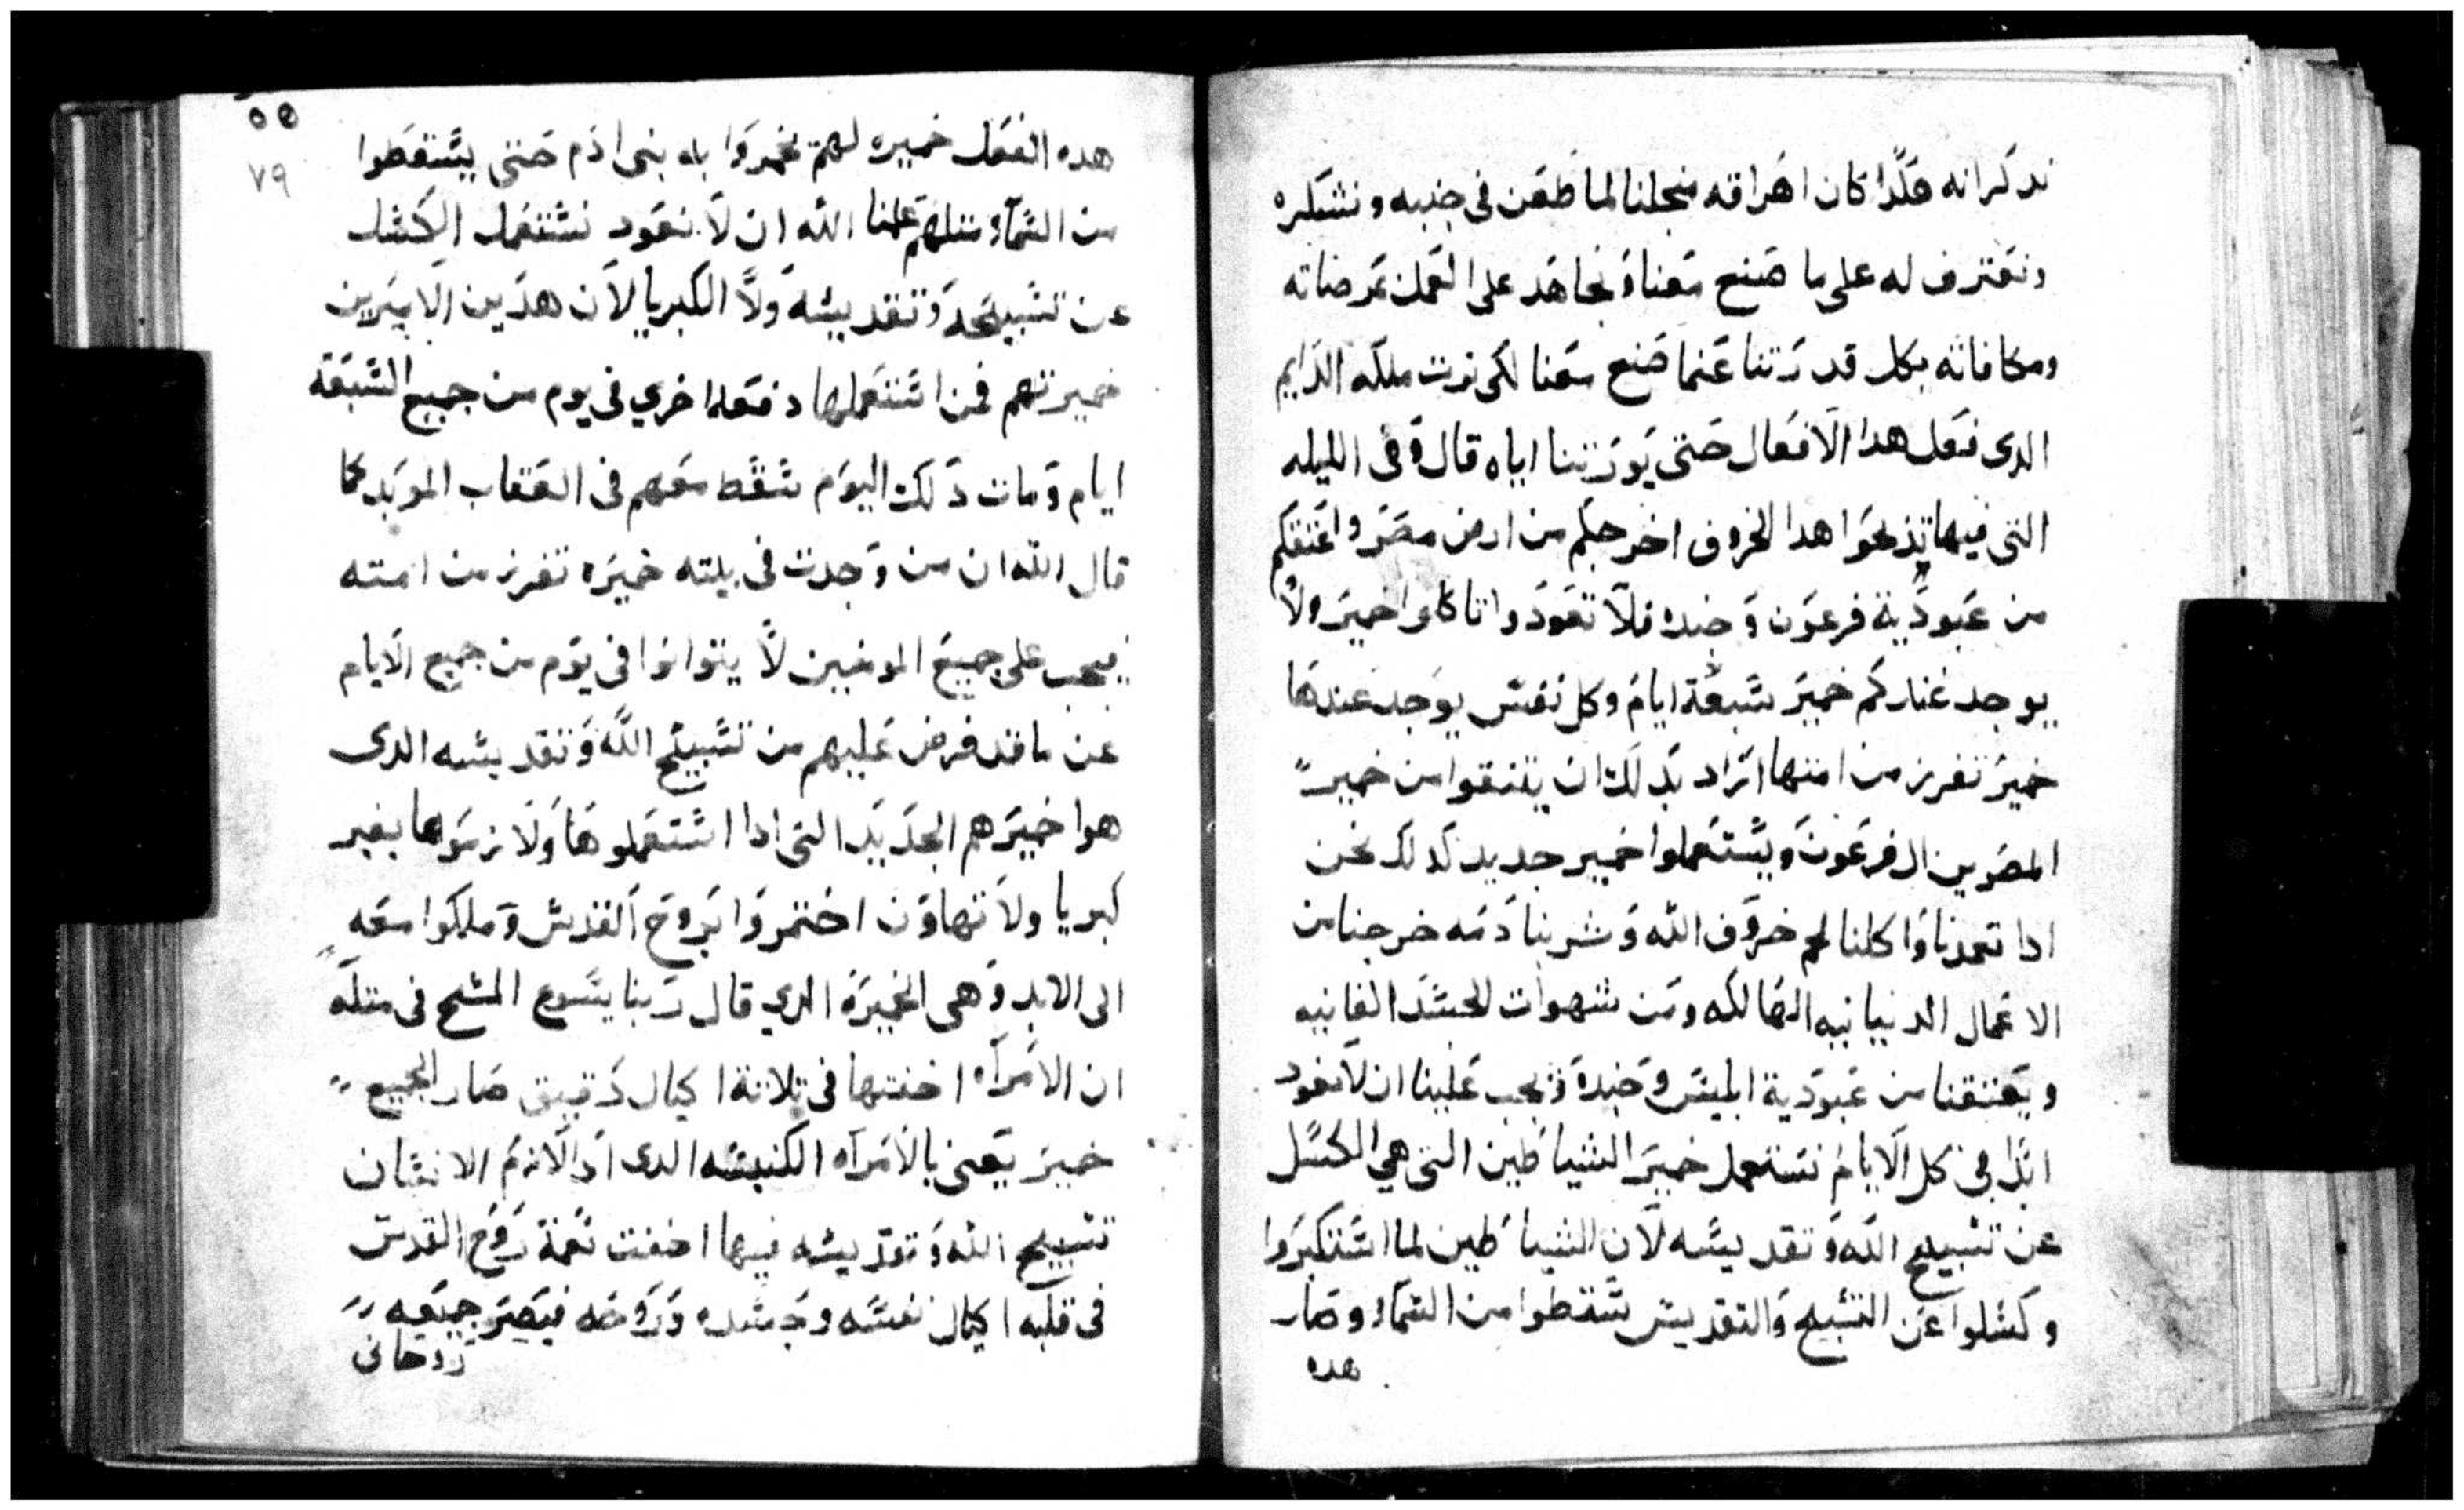 ندكر انه هكدا كان اهراقه منجلنا لما طعن فى جنبه ونشكره
ونعترف له على ما صنع معنا ونجاهد على العمل بمرضاته
ومكافاته بكل قدرتنا عنما صنع معنا لكى نرت ملكه الدايم
الدى فعل هدا الافعال حتى يورتنا اياه قال وفى الليله
التى فيها تذبحوا هدا الخروف اخرجكم من ارض مصر واعتقكم
من عبودية فرعون وجنده فلا تعودوا تاكلوا خمير ولا
يوجد عندكم خمير سبعة ايام وكل نفس يوجد عندها
خمير تفرز من امتها اراد بدلك ان يعتقوا من خمير
المصريين ال فرعون ويستعملوا خمير جديد كدلك نحن
ادا تعمدنا واكلنا لحم خروف الله وشربنا دمه خرجنا من
الاعمال الدنيانيه الهالكه ومن شهوات الجسد الفانيه
ويعتقنا من عبودية ابليس وجنده ويجب علينا ان لا نعود
ابدا فى كل الايام نستعمل خمير الشياطين التى هي الكسل
عن تسبيح الله وتقديسه لان الشياطين لما استكبروا
وكسلوا عن التسبيح والتقديس سقطوا من السماء وصار
هده
٥٥
٧٩
هده الفعل خميره لهم يخمروا به بنى ادم حتى يسقطوا
من السماء متلهم علمنا الله ان لا نعود نستعمل الكسل
عن تسبيحه وتقديسه ولا الكبريا لان هدين الامرين
خميرتهم فمن استعملها دفعه اخري فى يوم من جميع السبعة
ايام ومات دلك اليوم سقط معهم فى العقاب الموبد كما
قال الله ان من وجدت فى بيته خميره تفرز من امته
فيجب على جميع المومنين لا يتوانوا فى يوم من جميع الايام
عن ما قد فرض عليهم من تسبيح الله وتقديسه الدى
هوا خميرهم الجديد التى ادا استعملوها ولازموها بغير
كبريا ولا تهاون اختمروا بروح القدس وملكوا معه
الى الابد وهى الخميره الدي قال ربنا يسوع المسيح فى متله
ان الامراه اخفتها فى تلاتة اكيال دقيق صار الجميع
خمير يعنى بالامراه الكنيسه الدى ادا لازم الانسان
تسبيح الله وتقديسه فيها اخفت نعمة روح القدس
فى قلبه اكيال نفسه وجسده وروحه فيصير جميعه
روحانى